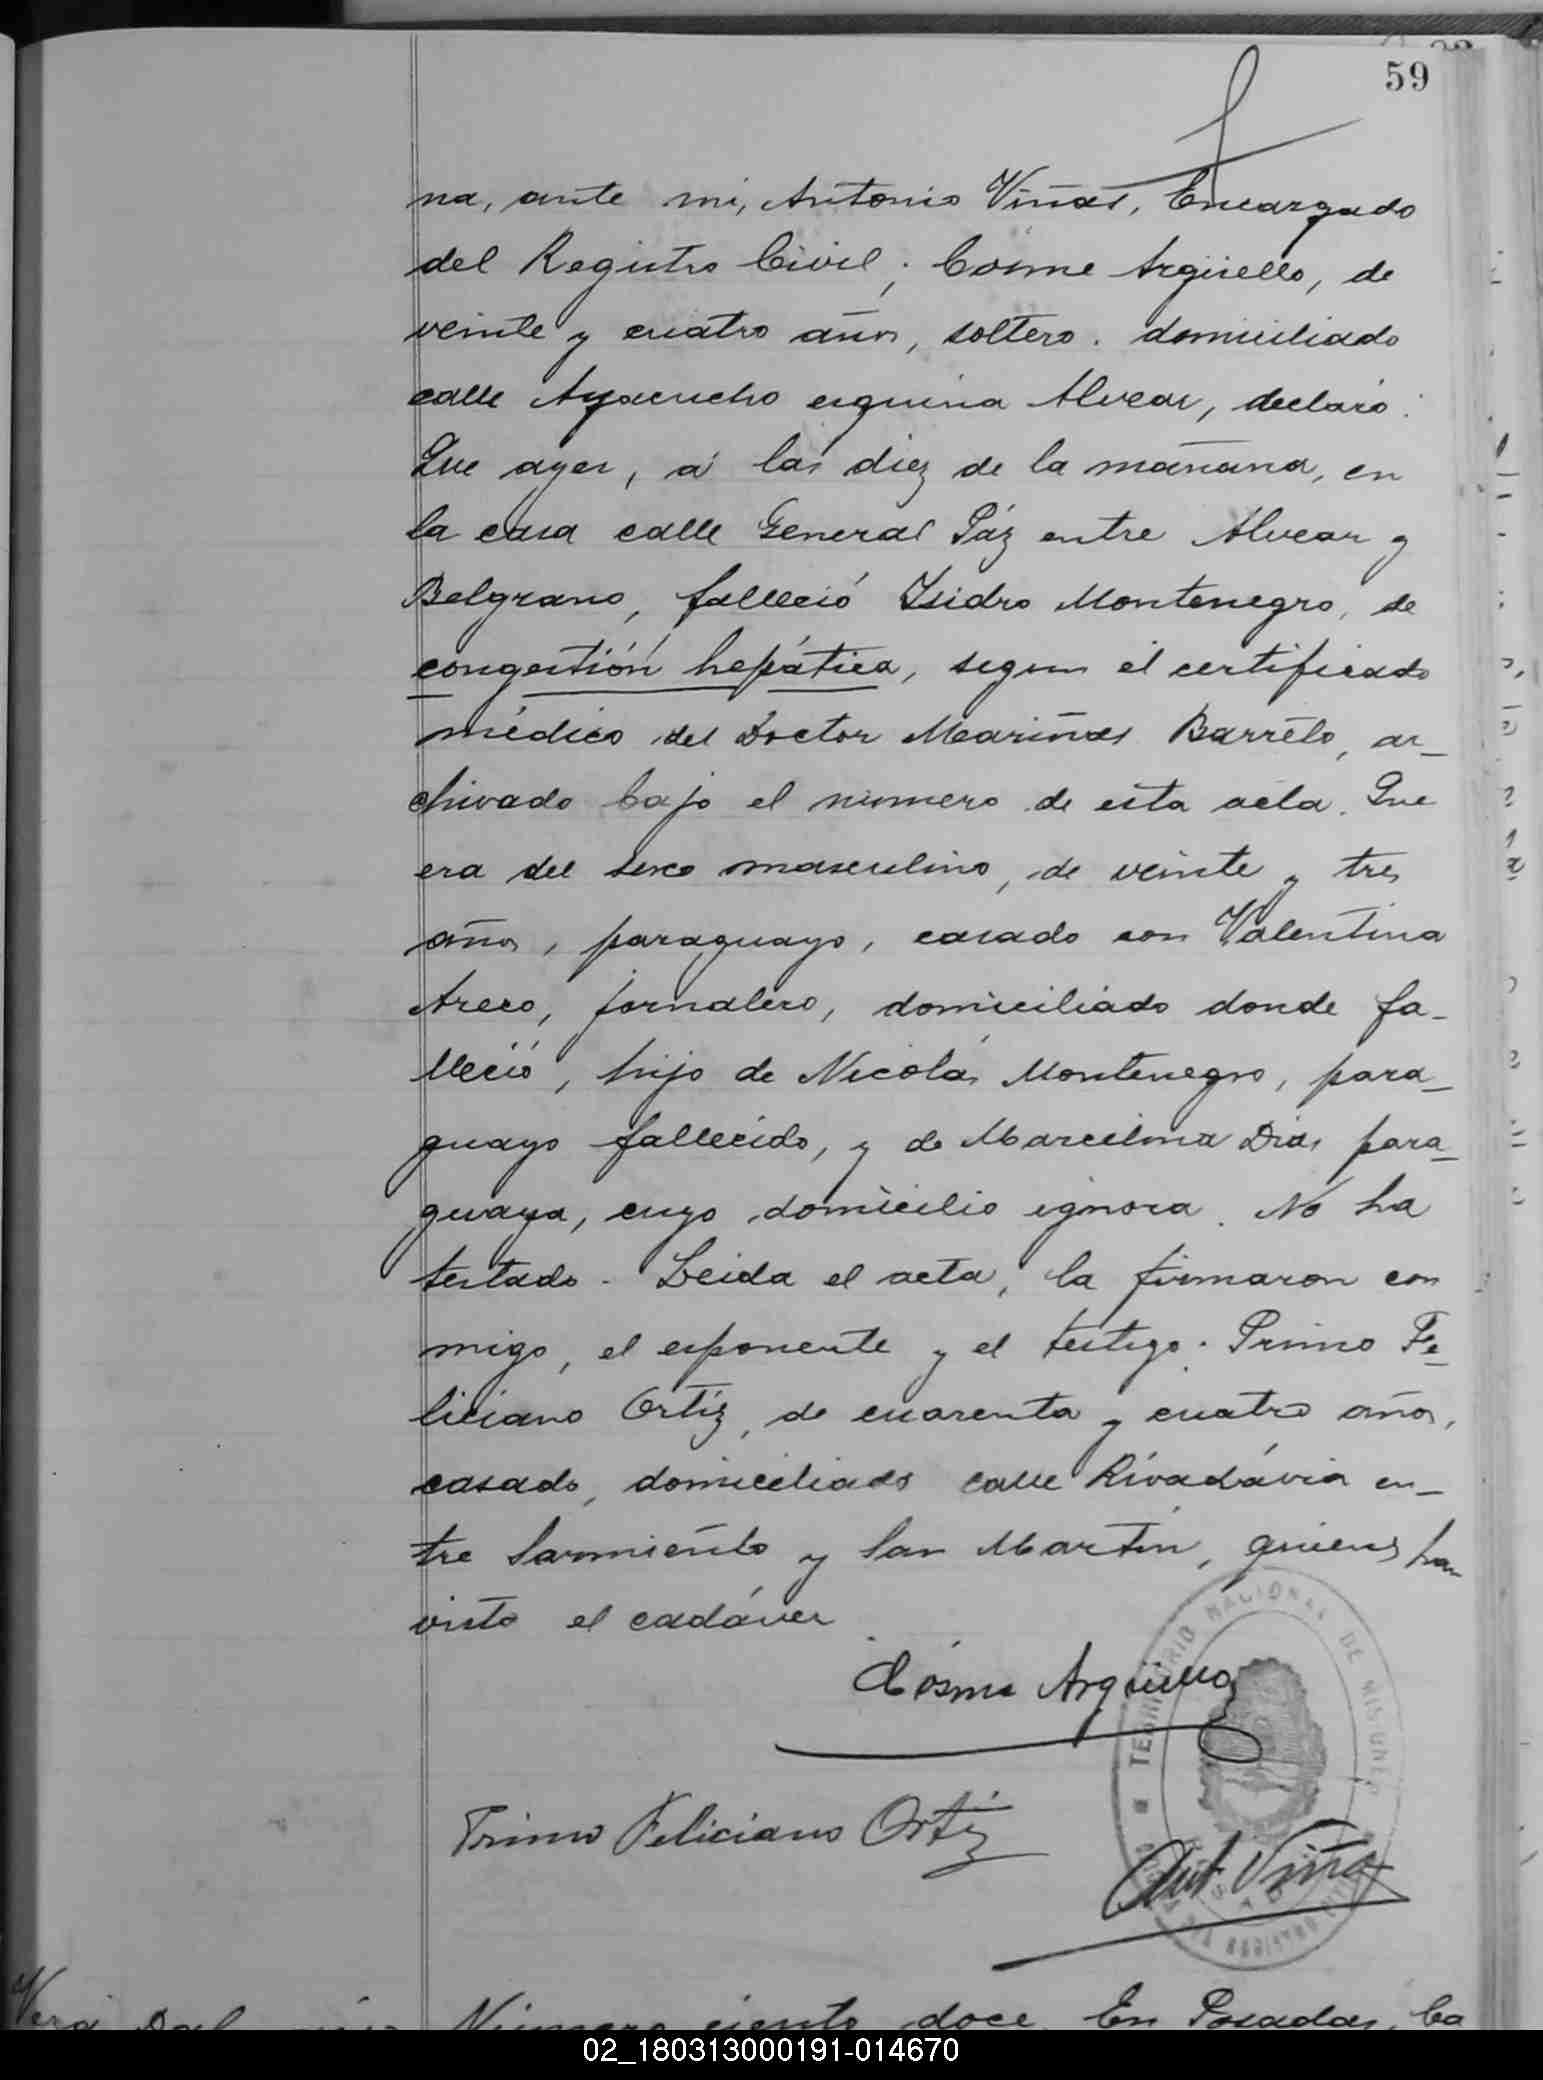 59
na, ante mi, Antonio Viñas, Encargado
del Registro Civil; Cosme Argüello, de
veinte y cuatro años, soltero. domiciliado
calle Ayacucho esquina Alvear, declaró:
Que ayer, á las diez de la mañana, en
la casa calle General Páz entre Alvear y
Belgrano, falleció Isidro Montenegro, de
congestión hepática, segun el certificado
médico del Doctor Mariñas Barreto, ar_
chivado bajo el numero de esta acta. Que
era del sexo masculino, de veinte y tres
años, paraguayo, casado con Valentina
Areco, jornalero, domiciliado donde fa_
lleció, hijo de Nicolás Montenegro, para_
guayo fallecido, y de Marcelina Dias para_
guaya, cuyo domicilio ignora. No ha
testado. Leida el acta, la firmaron con
migo, el esponente y el testigo. Primo Fe_
liciano Ortíz, de cuarenta y cuatro años,
casado, domiciliado calle Rivadávia en_
tre Sarmiento y San Martín, quienes han
visto el cadáver
Cósme Argüello
TERRITORIO NACIONAL DE MISIONES
Primo Feliciano Ortiz
Ant Viñas
REGISTRO CIVIL
Vera
Número ciento doce En Posadas, Ca
02_180313000191-014670